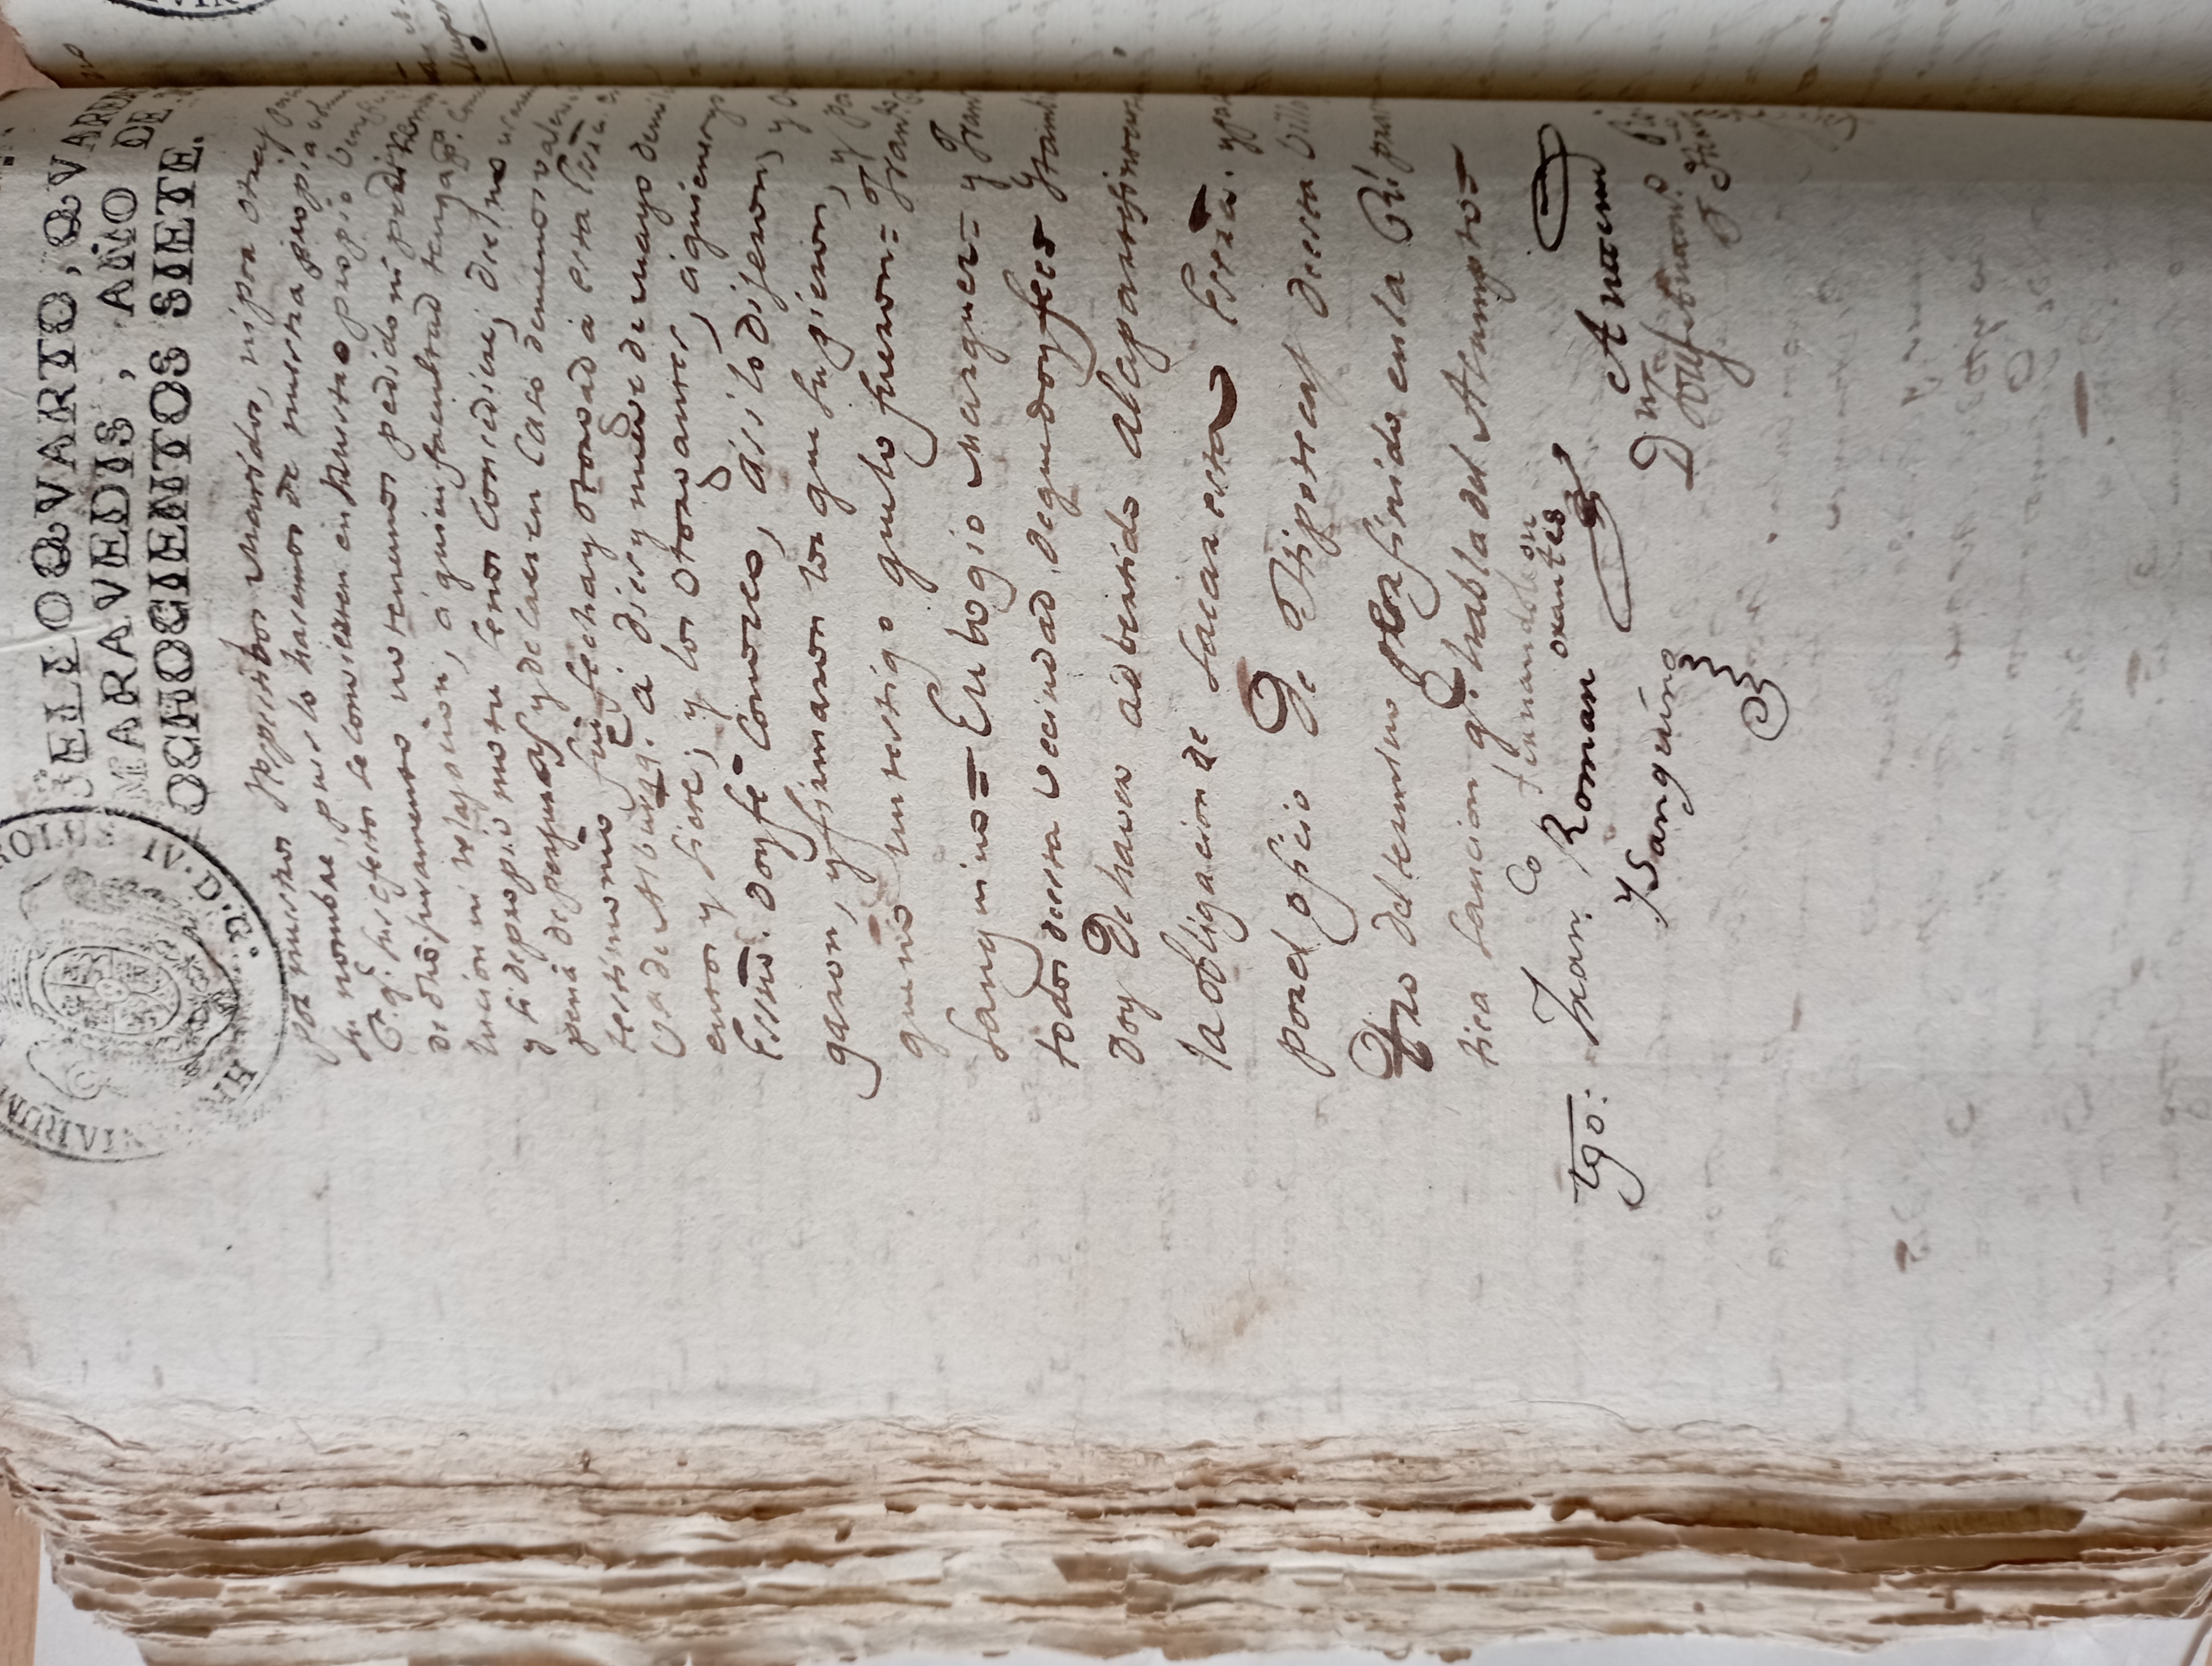 HISPANIARUM
CAROLUS IV.D.G.
SELLO QVARTO, QVAREN
MARAVEDIS, AÑO DE
OCHOCIENTOS SIETE.
por nuestros Respectibos Maridos, ni por otras
su nombre, pues lo hacemos de nuestra propia
P. q.e sus efectos se convierten en Nuestro propio
de dhō. juramento no tenemos pedido ni pediremos
lucion ni relajacion, á quien facultad tenga p.a
y si de propio motu senos concediere; de el no
pena de perjuras y de caer en caso de menos valer
testimonio fué fecha y otorgad á esta Essrã.
V.a de Alburqq.e á dies y nueve de Mayo de mil
entos y siete; y los otorgantes, á quienes yo
Essnõ. doy fé conozco, ási lo dijeron, y
garon, y firmaron los que supieron, y por
que nó un testigo que lo fueron = Fran.co
Sanguino = Eulogio Marquez = y Fran
todos de esta vecindad de que doy fee = Y tamb
doy De haver adbertido a la parte
la obligacion de sacar esta Escrã. y
por el oficio De Hipotecas de esta Villa
tro del termino prefinido en la Rl. prac
tica sancion q.e habla del Asumpto =
Fernando Leon
orantes
tgo: Fran.co Roman
y Sanguino
Antemi
D.n